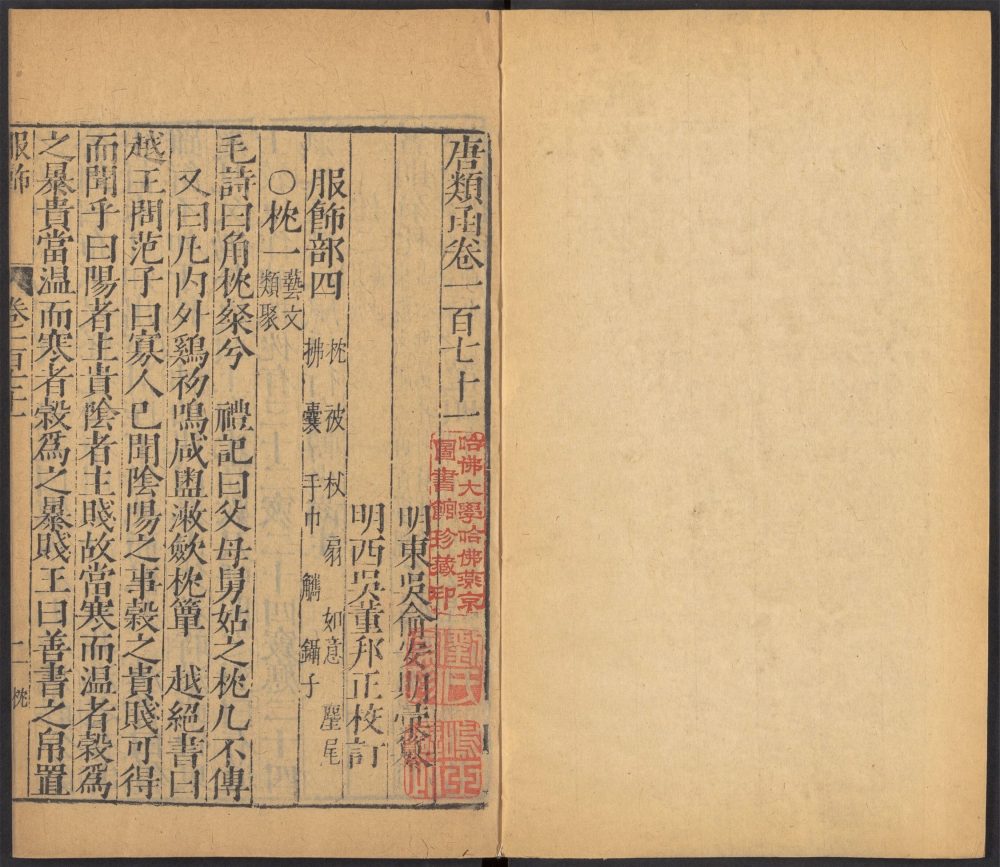 唐類函卷一百七十一
明東吳俞安期彚纂
明西吳董邦正校訂
服飾部四
枕 被 杖 扇 如意 麈尾
拂 囊 手巾 觿 鑷子
○枕一
藝文
類聚
毛詩曰角枕粲兮 禮記曰父母舅姑之枕几不傳
又曰凡内外鷄初鳴咸盥漱斂枕簟 越絕書曰
越王問范子曰寡人已聞陰陽之事穀之貴賤可得
而聞乎曰陽者主貴陰者主賤故當寒而温者穀爲
之暴貴當温而寒者穀爲之暴賤王曰善書之帛置
服飾
卷一百七十一
一
枕
哈佛大學哈佛燕京
圖書館珍藏印